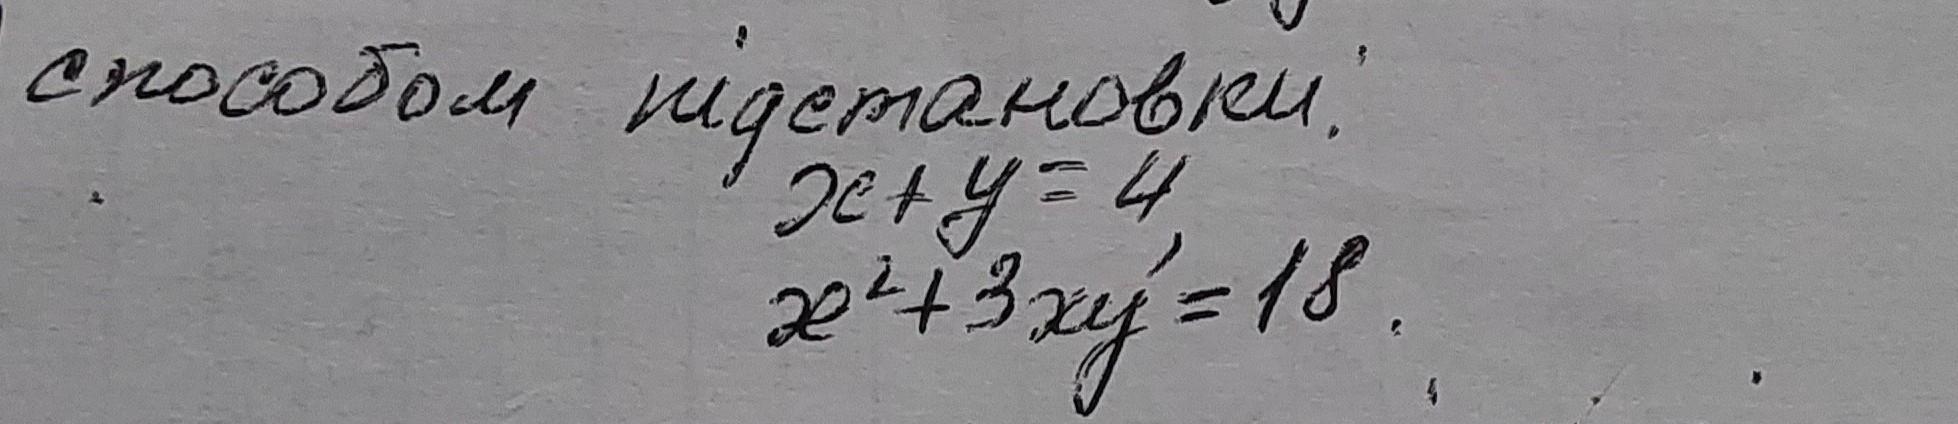 способом підстановки:
x + y = 4
x² + 3xy = 18.